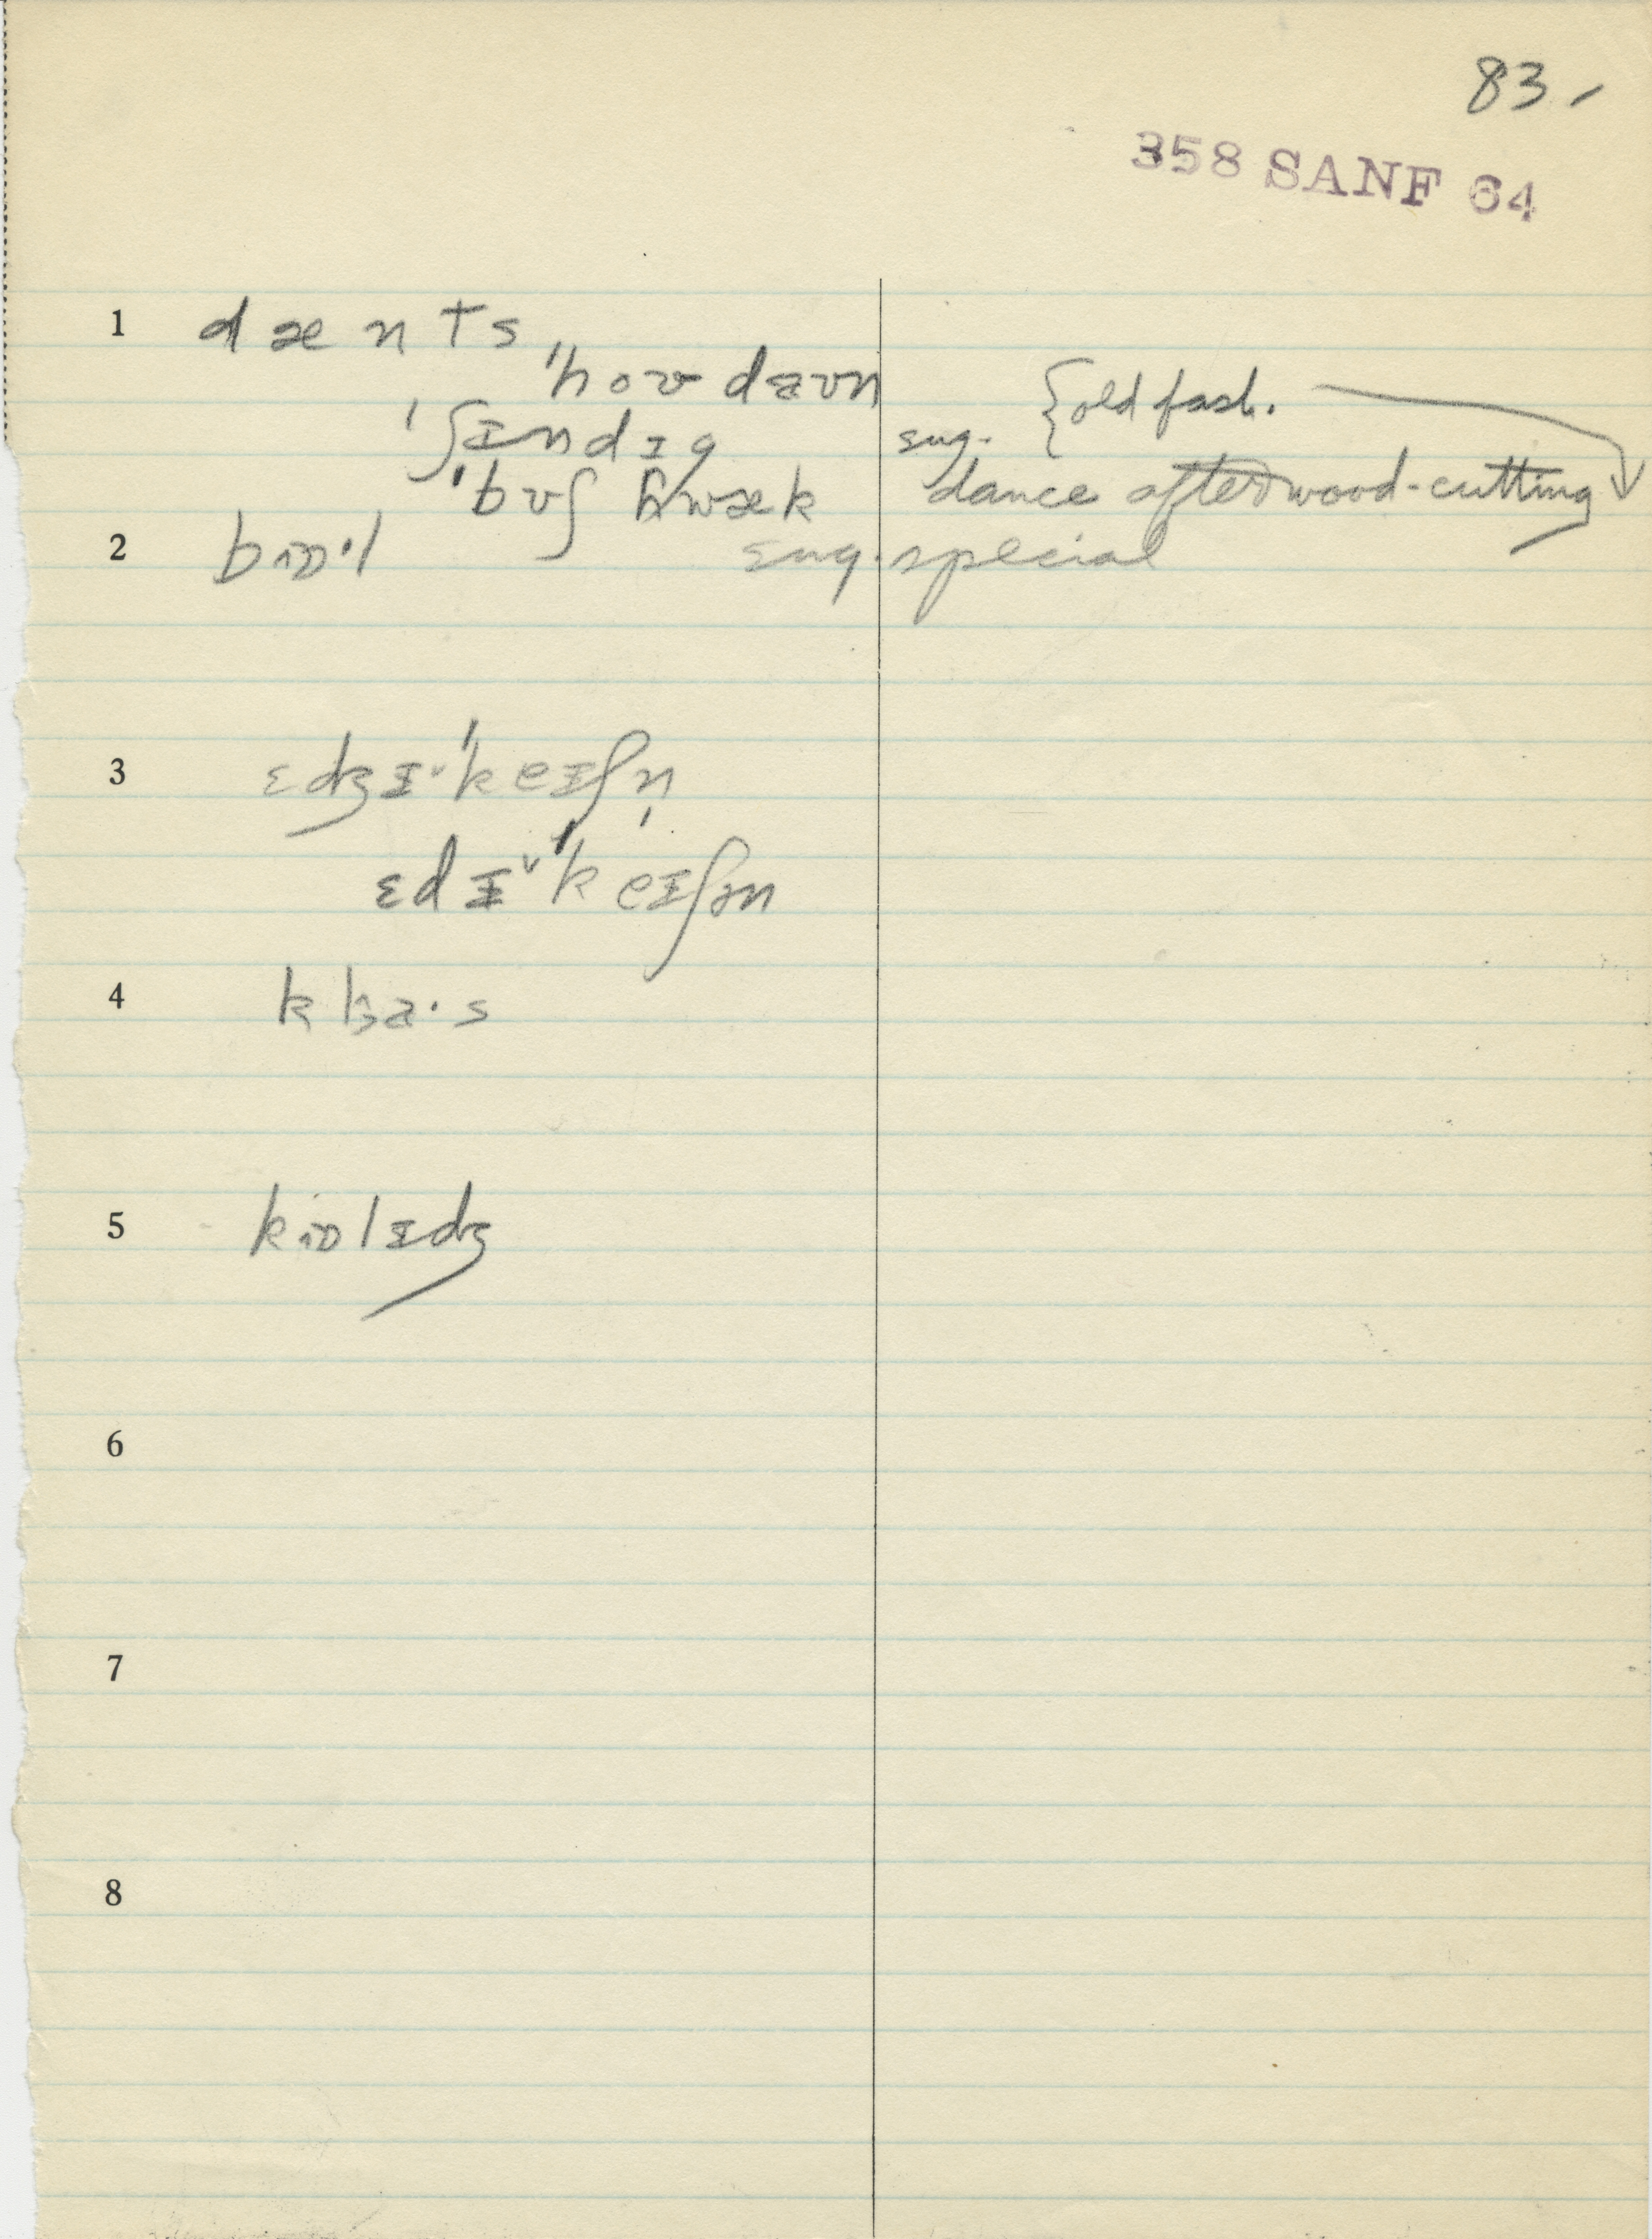 83.
358 SANF 64
1 dænts
ˈhoʊdaʊn
ˈʃɪndɪg sug. {old fash.
ˈbʊʃ hwæk dance after wood-cutting
2 bɔɒ·l sug. special
3 ɛdʒɪ˅ˈkeɪʃn̩
ɛdɪ˅ˈkeɪʃən
4 a·s
5 kɒlɪdʒ
6
7
8